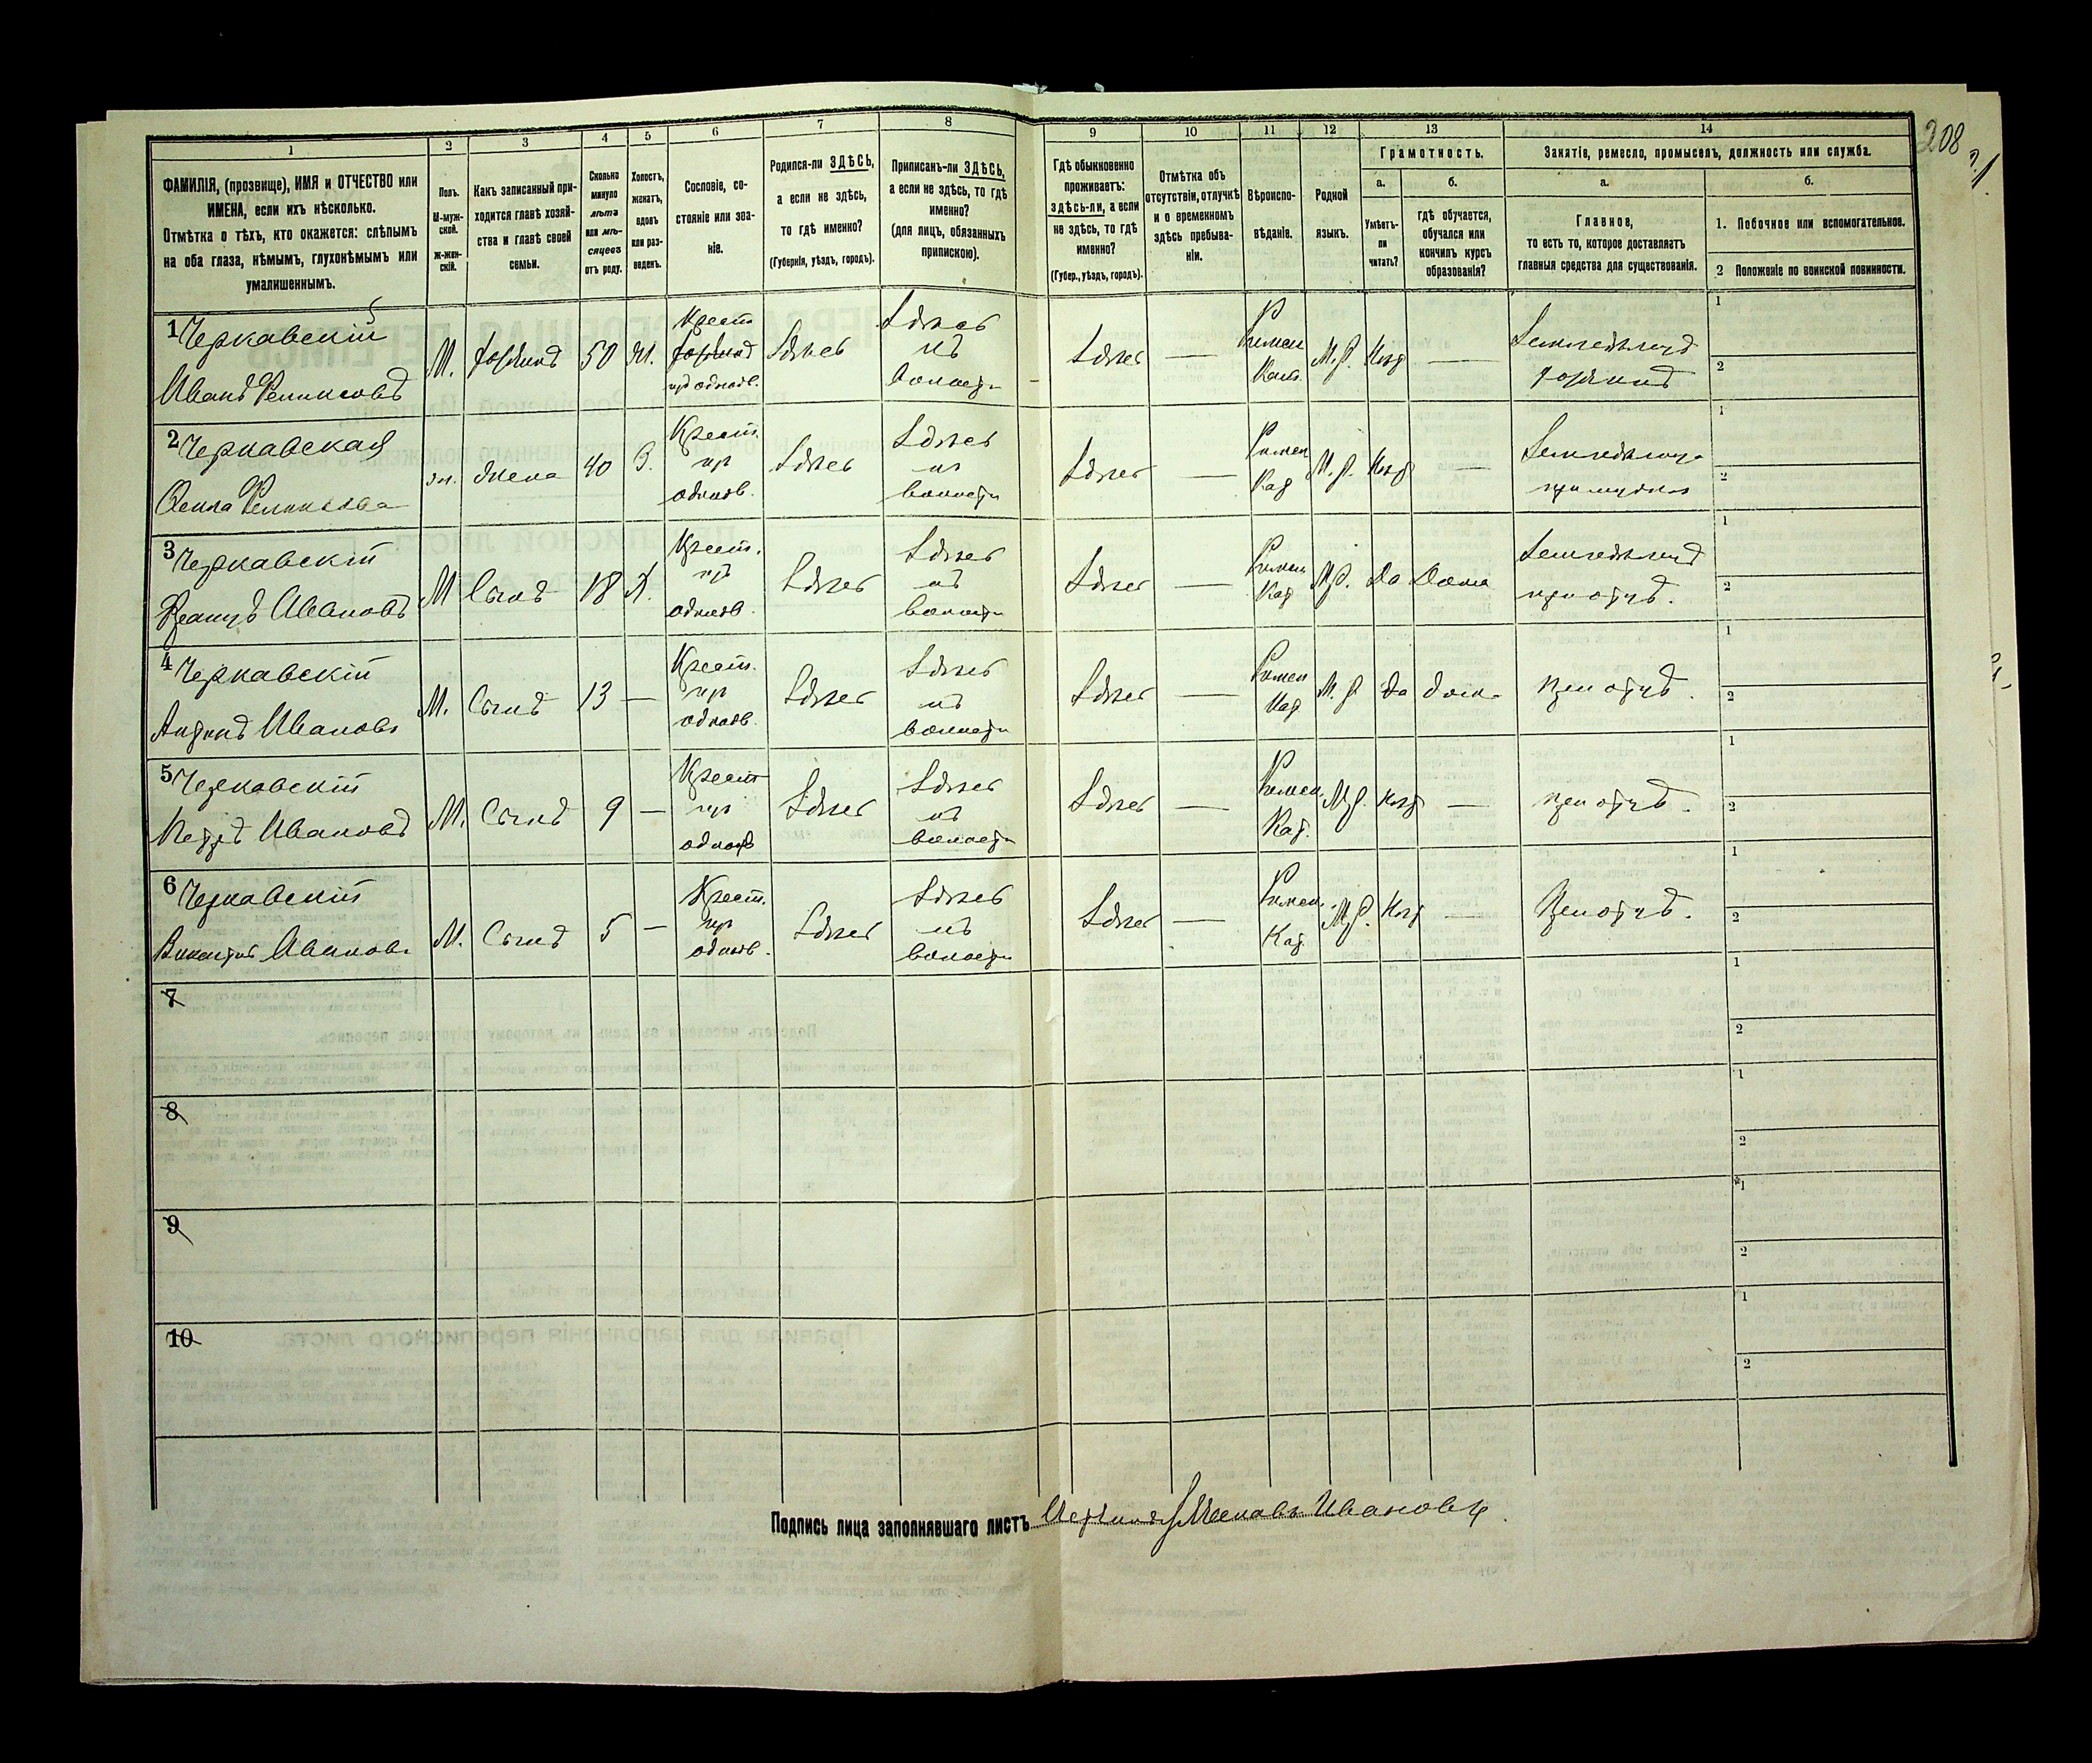 208
1 2 3 4 5 6 7 8 9 10 11 12 13 14
ФАМИЛІЯ, (прозвище), ИМЯ и ОТЧЕСТВО или
ИМЕНА, если ихъ нѣсколько.
Отмѣтка о тѣхъ, кто окажется: слѣпымъ
на оба глаза, нѣмымъ, глухонѣмымъ или
умалишеннымъ.
Полъ.
М-муж-
ской.
Ж-жен-
скій.
Какъ записанный при-
ходится главѣ хозяй-
ства и главѣ своей
семьи.
Сколько
минуло
лѣтъ
или мѣ-
сяцевъ
отъ роду.
Холостъ,
женатъ,
вдовъ
или раз-
веденъ.
Сословіе, со-
стояніе или зва-
ніе.
Родился-ли ЗДѢСЬ,
а если не здѣсь,
то гдѣ именно?
(Губернія, уѣздъ, городъ).
Приписанъ-ли ЗДѢСЬ,
а если не здѣсь, то гдѣ
именно?
(для лицъ, обязанныхъ
припискою).
Гдѣ обыкновенно
проживаетъ:
здѣсь-ли, а если
не здѣсь, то гдѣ
именно?
(Губер., уѣздъ, городъ).
Отмѣтка объ
отсутствіи, отлучкѣ
и о временномъ
здѣсь пребыва-
ніи.
Вѣроиспо-
вѣданіе.
Родной
языкъ.
Грамотность.
а.
Умѣетъ-
ли
читать?
б.
гдѣ обучается,
обучался или
кончилъ курсъ
образованія?
Занятіе, ремесло, промыселъ, должность или служба.
а.
Главное,
то есть то, которое доставляетъ
главныя средства для существованія.
б.
1. Побочное или вспомогательное.
2 Положеніе по воинской повинности.
1 Черкавскій
Иванъ Феликсовъ
М. хозяинъ 50 Ж.
Крест.
хозяинъ
изъ однодв.
Здѣсь
Здѣсь
въ
волости
Здѣсь —
Римск
Кат.
—
Земледѣлецъ
хозяинъ
1
2
2 Черкавская
жена 40 З.
Крест.
из
однодв.
Здѣсь
Здѣсь
въ
волости
Здѣсь —
Римск
Кат
—
при мужѣ
1
2
3 Черкавскій
Францъ Ивановъ
М Сынъ 18 Х.
Крест.
изъ
однодв.
Здѣсь
Здѣсь
въ
волости
Здѣсь —
Римск
Кат
Да Дома
Земледѣлецъ
при отцѣ.
1
2
4 Черкавскій
Антонъ Ивановъ
М. Сынъ 13 —
Крест.
из
однодв.
Здѣсь
Здѣсь
въ
волости
Здѣсь —
Римск
Кат
да дома
при отцѣ.
1
2
5 Черкавскій
Петръ Ивановъ
М. Сынъ 9 —
Крест
из
однодв
Здѣсь
Здѣсь
въ
волости
Здѣсь —
Римск
Кат.
—
при отцѣ.
1
2
6 Черкавскій
Викентій Ивановъ
М. Сынъ 5 —
Крест.
из
однодв.
Здѣсь
Здѣсь
въ
волости
Здѣсь —
Римск.
Кат.
—
При отцѣ.
1
2
7
1
2
8
1
2
9
1
2
10
1
2
Подпись лица заполнявшаго листъ